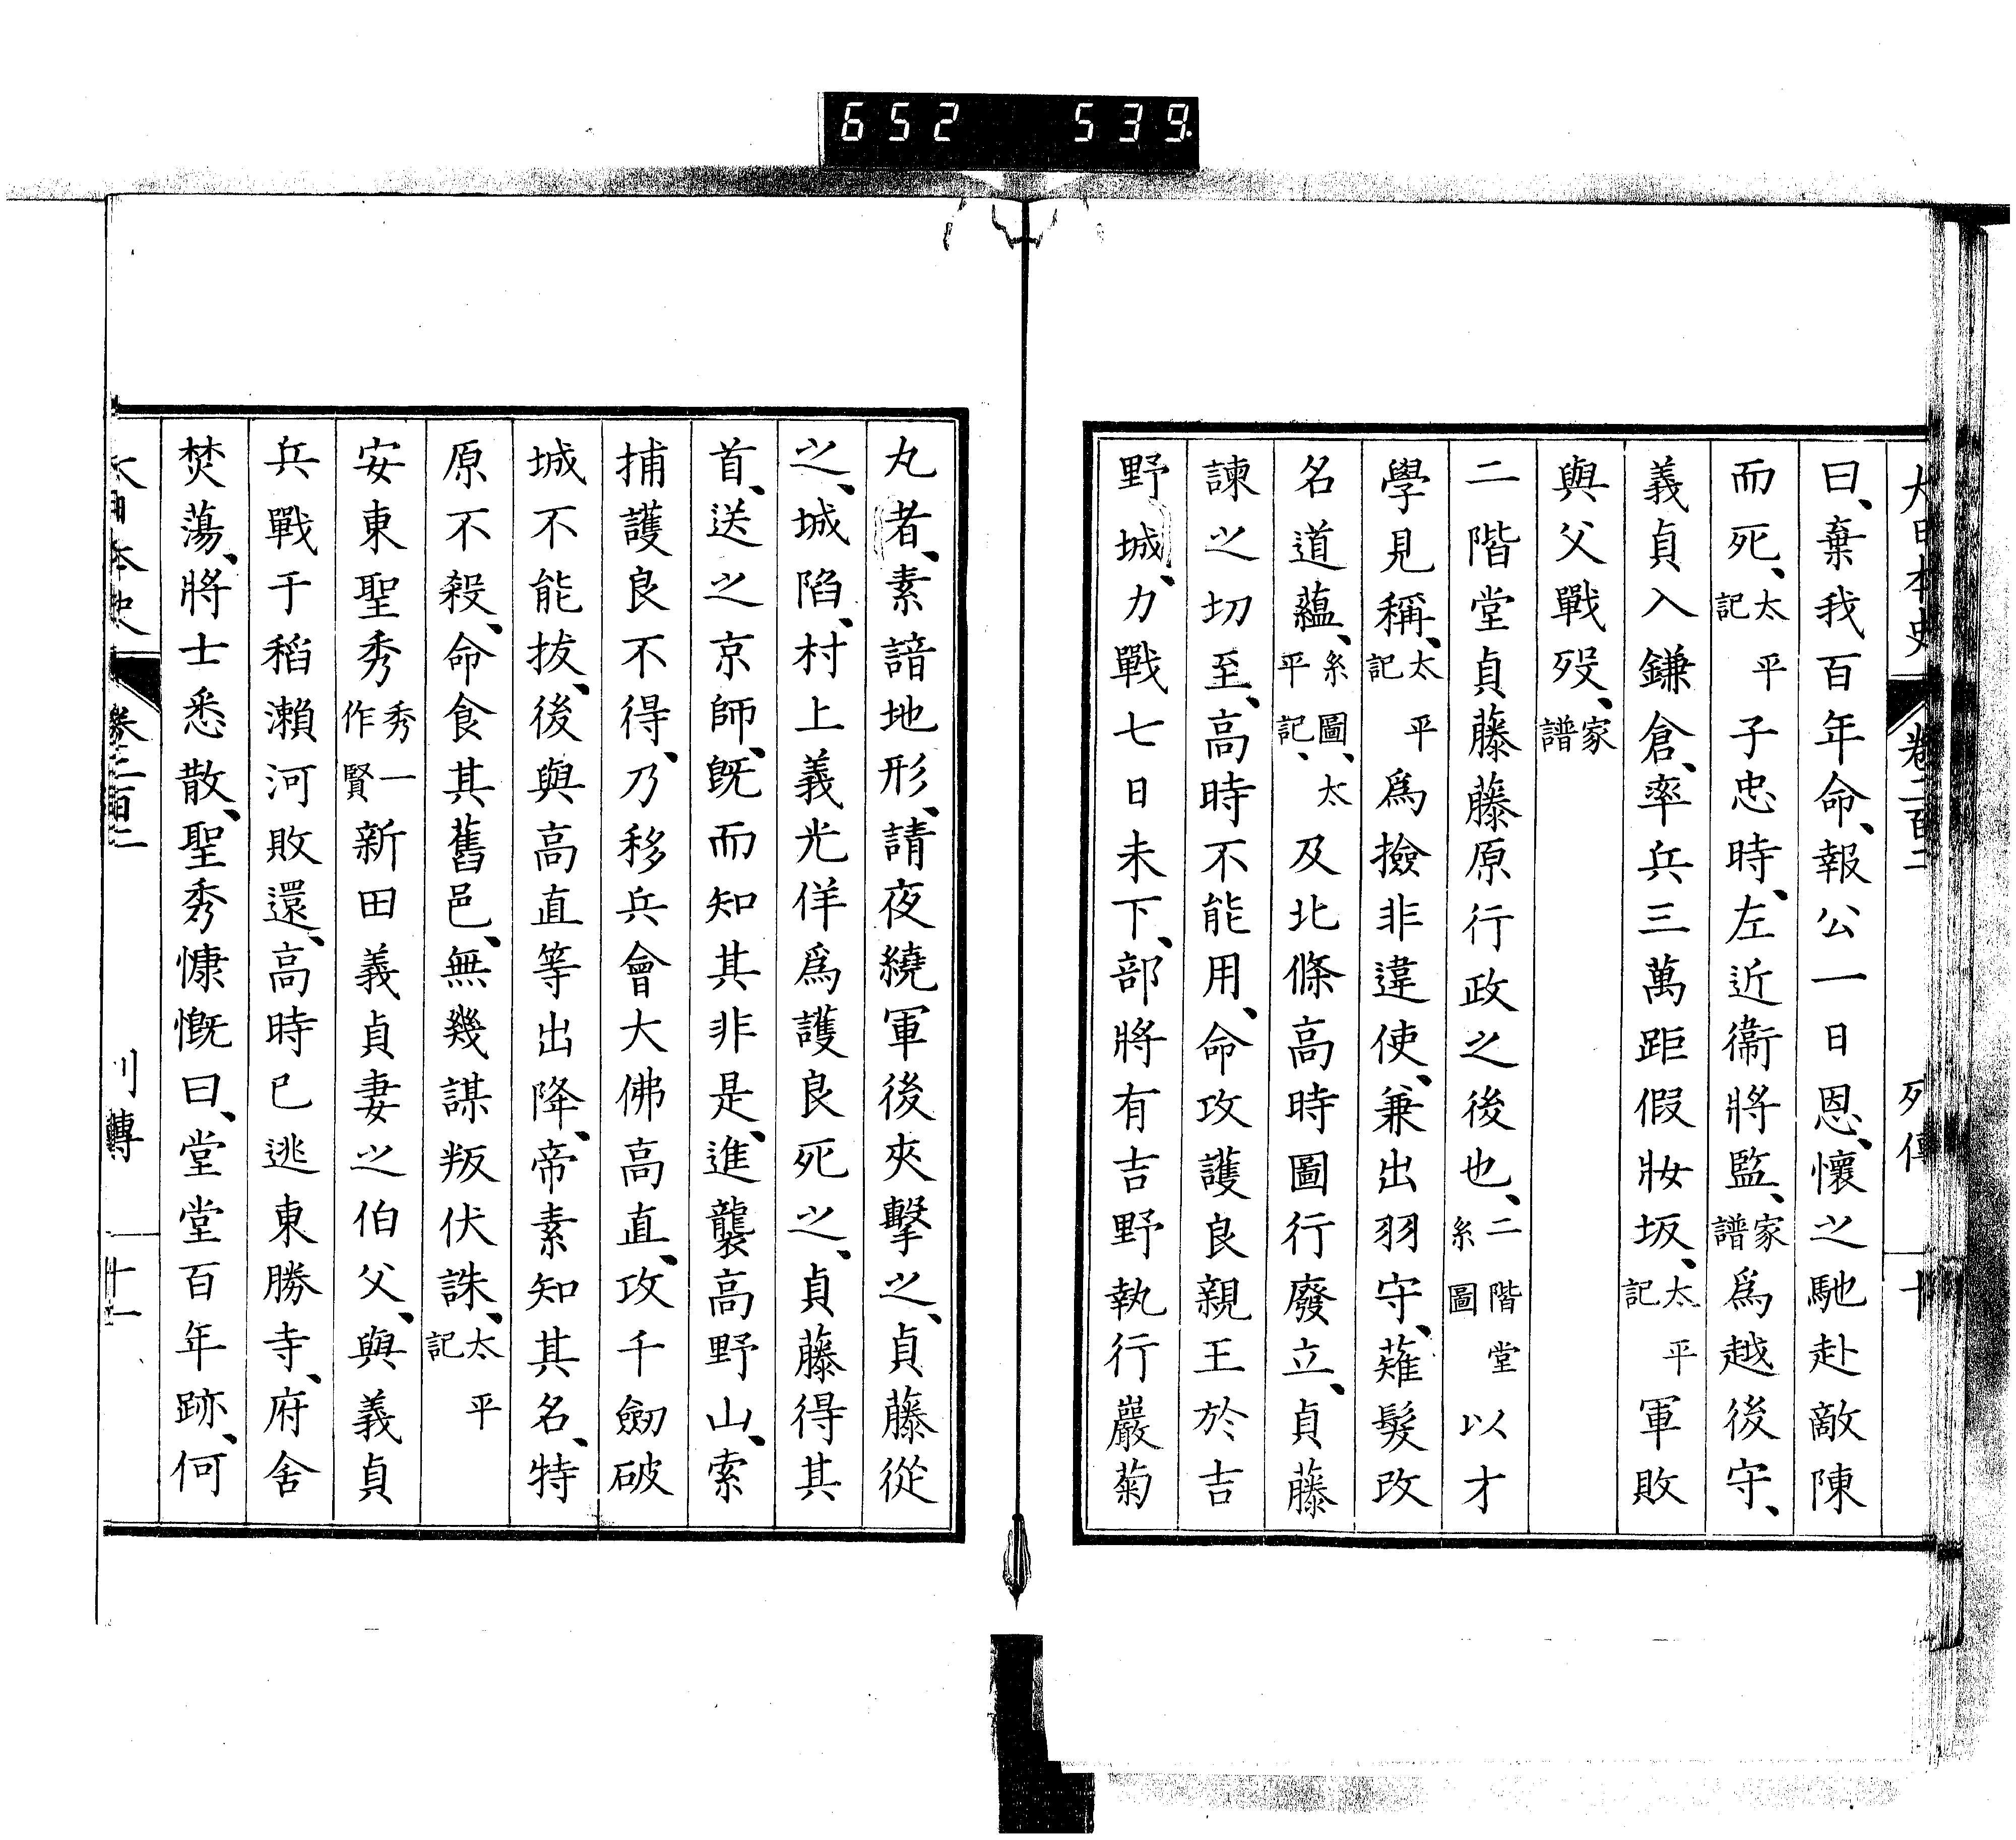 652 539
大日本史 卷二百二 列傳 十
曰、棄我百年命、報公一日恩、懷之馳赴敵陳
而死、太平記子忠時、左近衞將監、家譜爲越後守、
義貞入鎌倉、率兵三萬距假妝坂、太平記軍敗
與父戰歿、家譜
二階堂貞藤藤原行政之後也、二階堂系圖以才
學見稱、太平記爲撿非違使、兼出羽守、薙髮改
名道蘊、系圖、太平記、及北條高時圖行廢立、貞藤
諫之切至、高時不能用、命攻護良親王於吉
野城、力戰七日未下、部將有吉野執行巖菊
丸者、素諳地形、請夜繞軍後夾擊之、貞藤從
之、城陷、村上義光佯爲護良死之、貞藤得其
首、送之京師、既而知其非是、進襲高野山、索
捕護良不得、乃移兵會大佛高直、攻千劔破
城不能拔、後與高直等出降、帝素知其名、特
原不殺、命食其舊邑、無幾謀叛伏誅、太平記
安東聖秀秀一作賢新田義貞妻之伯父、與義貞
兵戰于稻瀨河敗還、高時已逃東勝寺、府舍
焚蕩、將士悉散、聖秀慷慨曰、堂堂百年跡、何
大日本史 卷二百二 列傳 十一